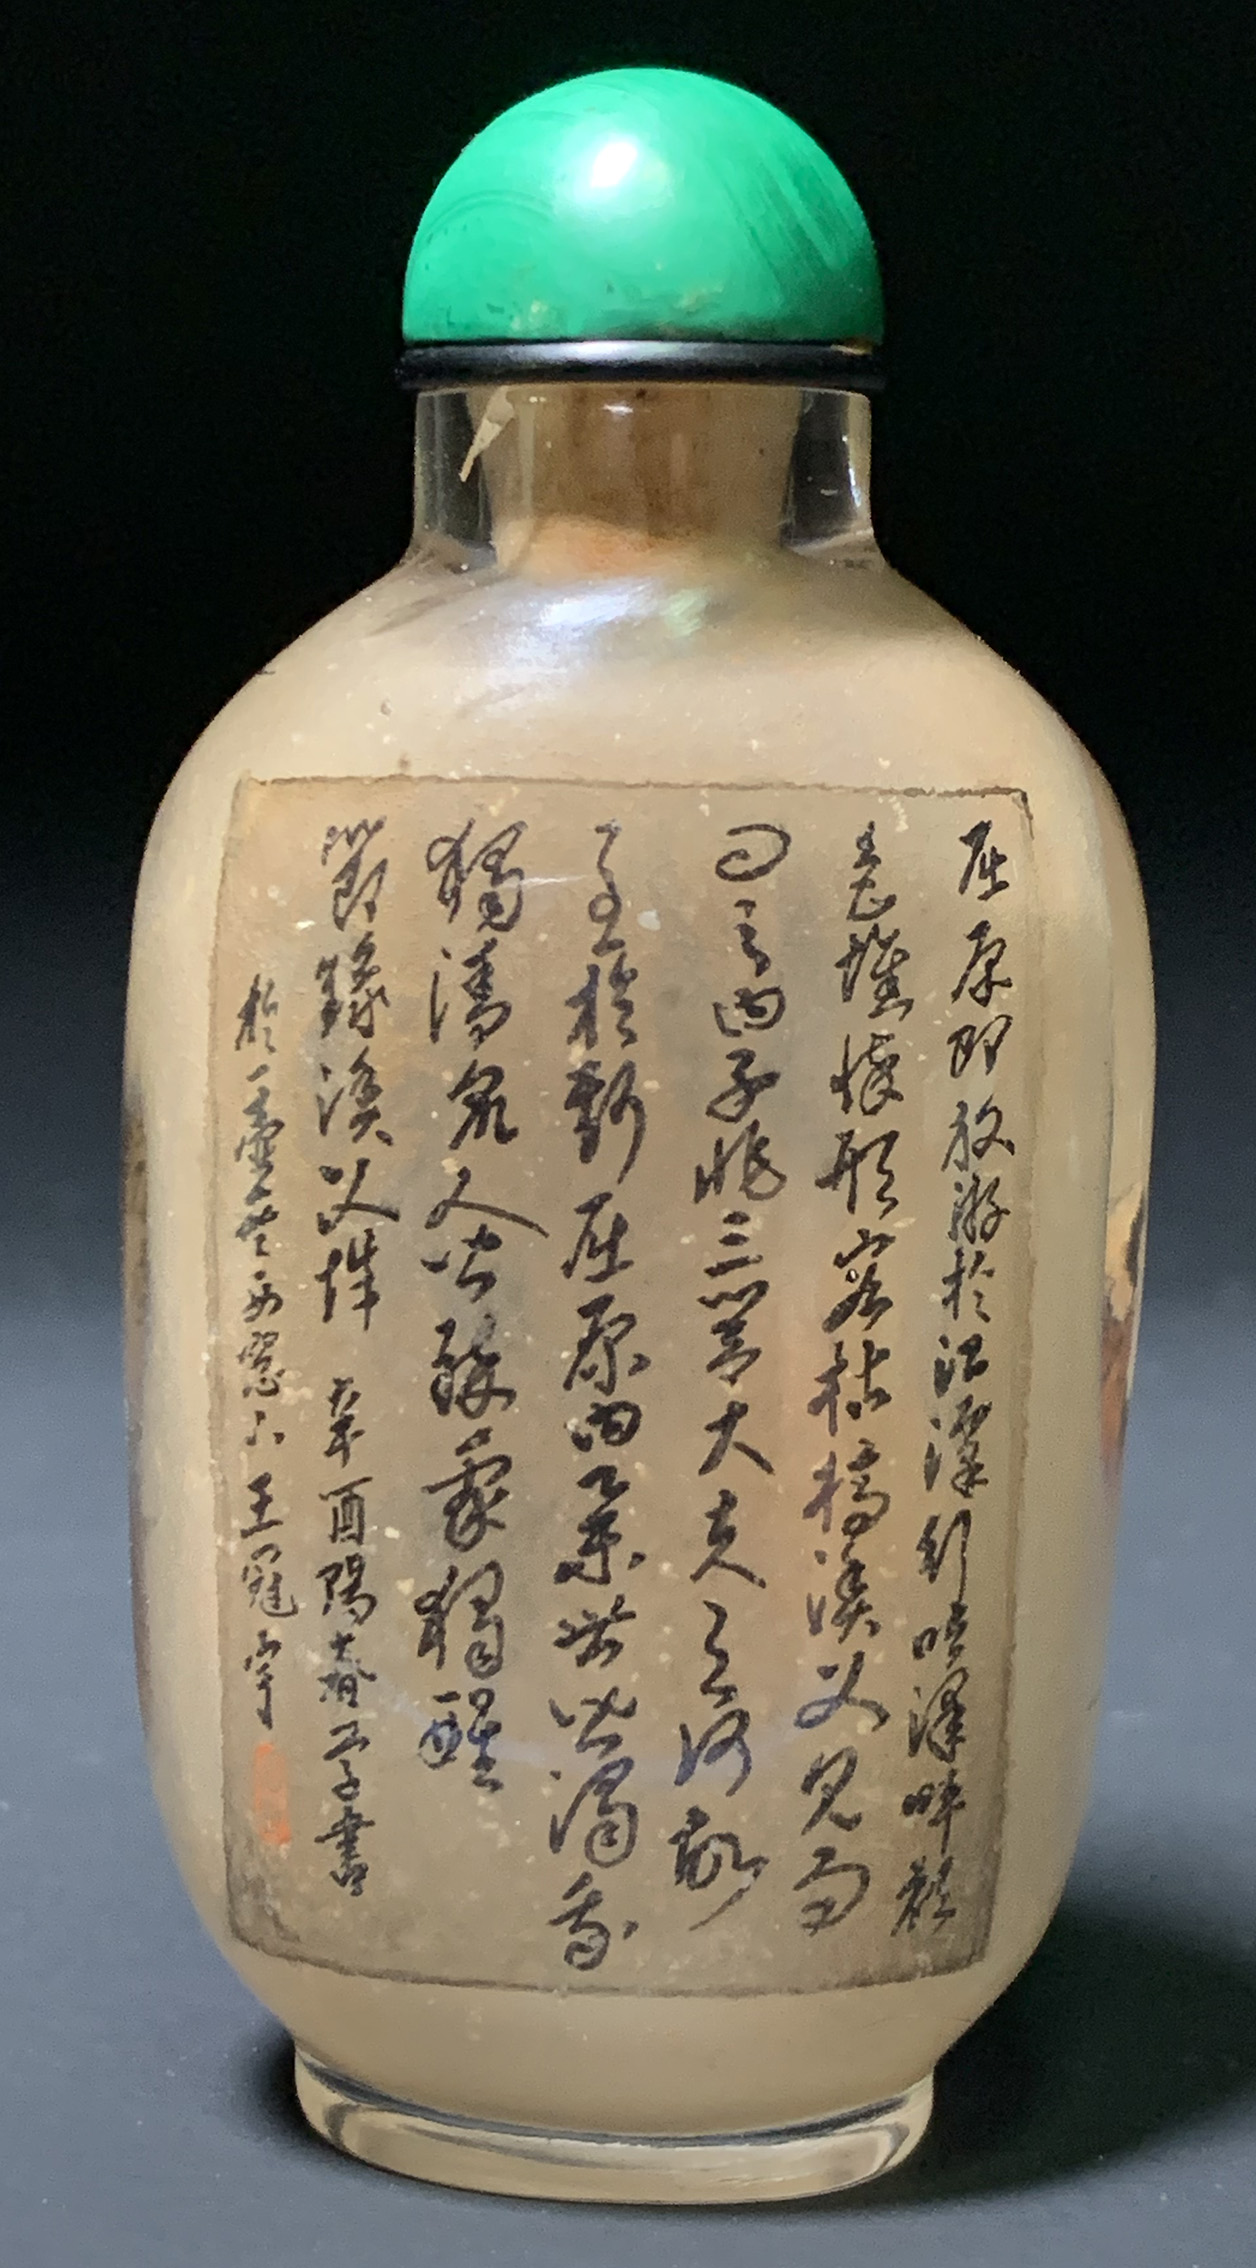 屈原即放游於江潭行吟澤畔顏
色憔悴形容枯槁漁父見而
問之曰子非三閭大夫與何故
至於斯屈原曰舉世皆濁我
獨清眾人皆醉我獨醒
節錄漁父辭 辛酉陽春學書
於一壺西窓下王冠宇